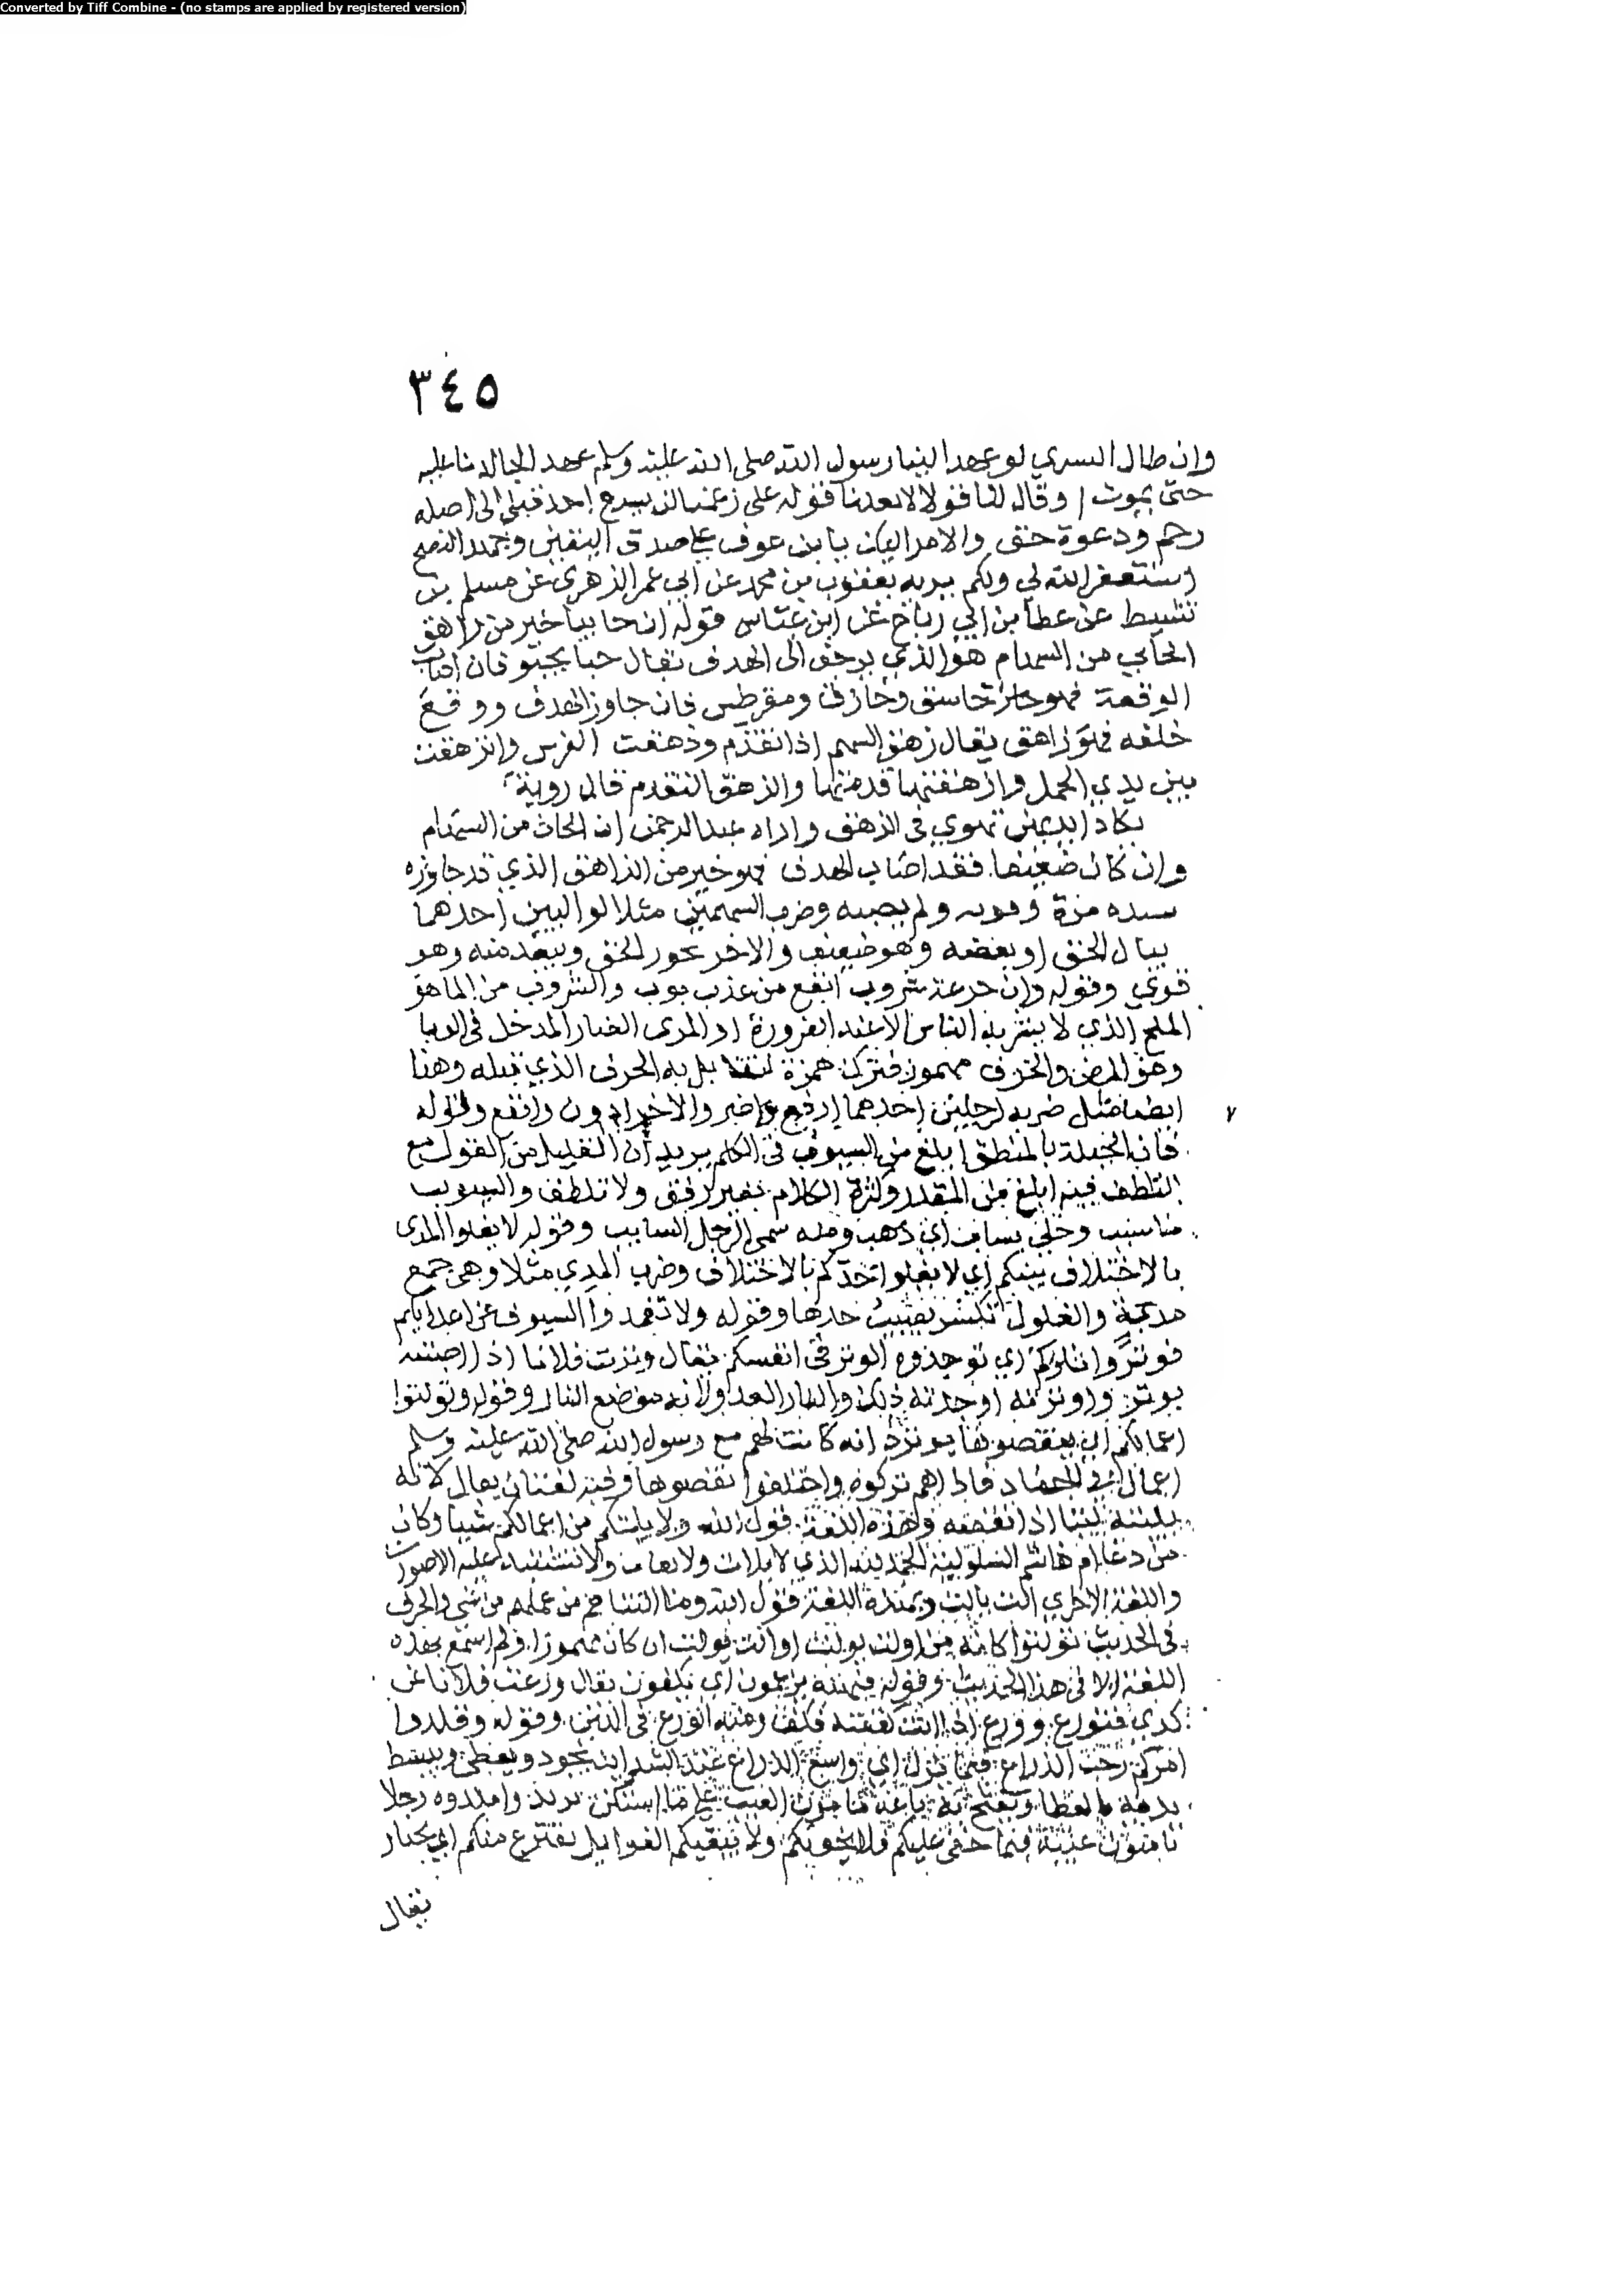 Converted by Tiff Combine - (no stamps are applied by registered version)
٣٤٥
وان طال السري لو عهد الينا رسول الله صلى الله عليه وسلم عهد الجالدنا عليه
حتى نموت او قال لنا قولا لانفدنا قوله على رغمنا لن يسرع احد قبلي الى صله
رحم ودعوة حق والامر اليك يا ابن عوف على صدق اليقين وجهد النصح
استغفر الله لي ولكم يرويه يعقوب بن محمد عن ابي عمر الزهري عن مسلم بن
نشيط عن عطا بن ابي رباح عن ابن عباس قوله ان حابيا خير من زاهق
الحابي من السهام هو الذي يزحف الى الهدف يقال حبا يحبو فان اصاب
الوقعة فهو خاسق وخازق ومقرطس فان جاوز الهدف ووقع
خلفه فهو زاهق يقال زهق السهم اذا تقدم وزهقت الفرس وانزهقت
بين يدي الحمل وازهقتها قدمتها والزهق التقدم قال روبة
تكاد ايديهن تهوي في الزهق واراد عبد الرحمن ان الحاب من السهام
وان كان ضعيفا فقد اصاب الهدف فهو خير من الزاهق الذي قد جاوزه
ولم يصبه وضرب السهمين مثلا لواليين احدهما
ينال الحق او بعضه وهو ضعيف والاخر يجوز الحق ويبعد منه وهو
قوي وقوله وان جرعة شروب انفع من عذب موب والشروب من الما هو
الملح الذي لا يشربه الناس الا عند الضرورة
وهو المرض والحرف مهموز فترك همزه ليقابل به الحرف الذي قبله وهذا
ايضا مثل ضربه لرجلين احدهما ارفع واضر والاخر ادون وانفع وقوله
فان الحيلة بالمنطق ابلغ من السيوب في الكلم يريد ان القليل من القول مع
التلطف فيه ابلغ من الهذر وكثرة الكلام بغير رفق ولا تلطف والسيوب
ما سيب وخلي يساب اي ذهب ومنه سمي الرجل السايب وقوله لا تفلوا المدى
بالاختلاف بينكم اي لا تفلوا حدكم بالاختلاف وضرب المدي مثلا وهي جمع
مدية والفلول تكسر يصيب حدها وقوله ولا تغمدوا السيوف عن اعدايكم
فوتروا ثاركم اي توجدوه الوتر في انفسكم يقال وترت فلانا اذا اصبته
بوتر واوترته اوجدته ذلك والثار العدو لانه موضع الثار وقوله وتولتوا
اعمالكم اي تنقصوها يريد انه كانت لهم مع رسول الله صلى الله عليه وسلم
اعمال في الجهاد فاذا هم تركوه واختلفوا نقصوها وفيه لغتان يقال لاته
يليته ليتا اذا نقصه وهذه اللغة قول الله ولا يلتكم من اعمالكم شيا وكان
من دعا ام هاشم السلولية الحمد لله الذي لا يلات ولا يفات ولا تشتبه عليه الاصوات
واللغة الاخرى الت يالت وبهذه اللغة قول الله وما التناهم من عملهم من شي والحرف
في الحديث تولتوا كانه من اولت يولت او الت يولت ان كان مهموزا ولم اسمع بهذه
اللغة الا في هذا الحديث وقوله يزعون اي يكفون يقال وزعت فلانا عن
كذي فتورع وورع اذا انت كففته فكف ومنه الورع في الدين وقوله وقلدوا
امركم رحب الذراع فيما نزل اي واسع الذراع عند الشدايد يجود ويعطي ويبسط
يده بالعطا ويفتح به باعه مامون الغيب على ما استكن يريد وقلدوه رجلا
تامنون غيبه فيما خفي عليكم فلا يخونكم ولا يبغيكم الغوايل يقترع منكم اي يختار
يقال